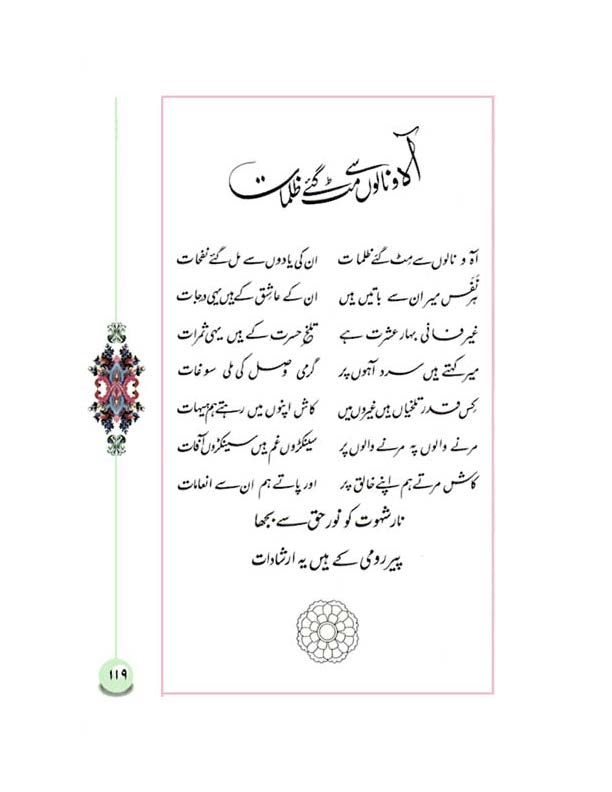 آہ و نالوں سے مٹ گئے ظلمات
آہ و نالوں سے مِٹ گئے ظلمات ان کی یادوں سے مل گئے نفحات
ہر نَفَس میر ان سے باتیں ہیں ان کے عاشق کے ہیں یہی درجات
غیر فانی بہار عشرت ہے تلخ حسرت کے ہیں یہی ثمرات
میر کہتے ہیں سرد آہوں پر گرمیِ وصل کی ملی سوغات
کِس قدر تلخیاں ہیں غیروں میں کاش اپنوں میں رہتے ہم ہیہات
مرنے والوں پہ مرنے والوں پر سینکڑوں غم ہیں سینکڑوں آفات
کاش مرتے ہم اپنے خالق پر اور پاتے ہم ان سے انعامات
نار شہوت کو نور حق سے بجھا
پیر رومی کے ہیں یہ ارشادات
۱۱۹